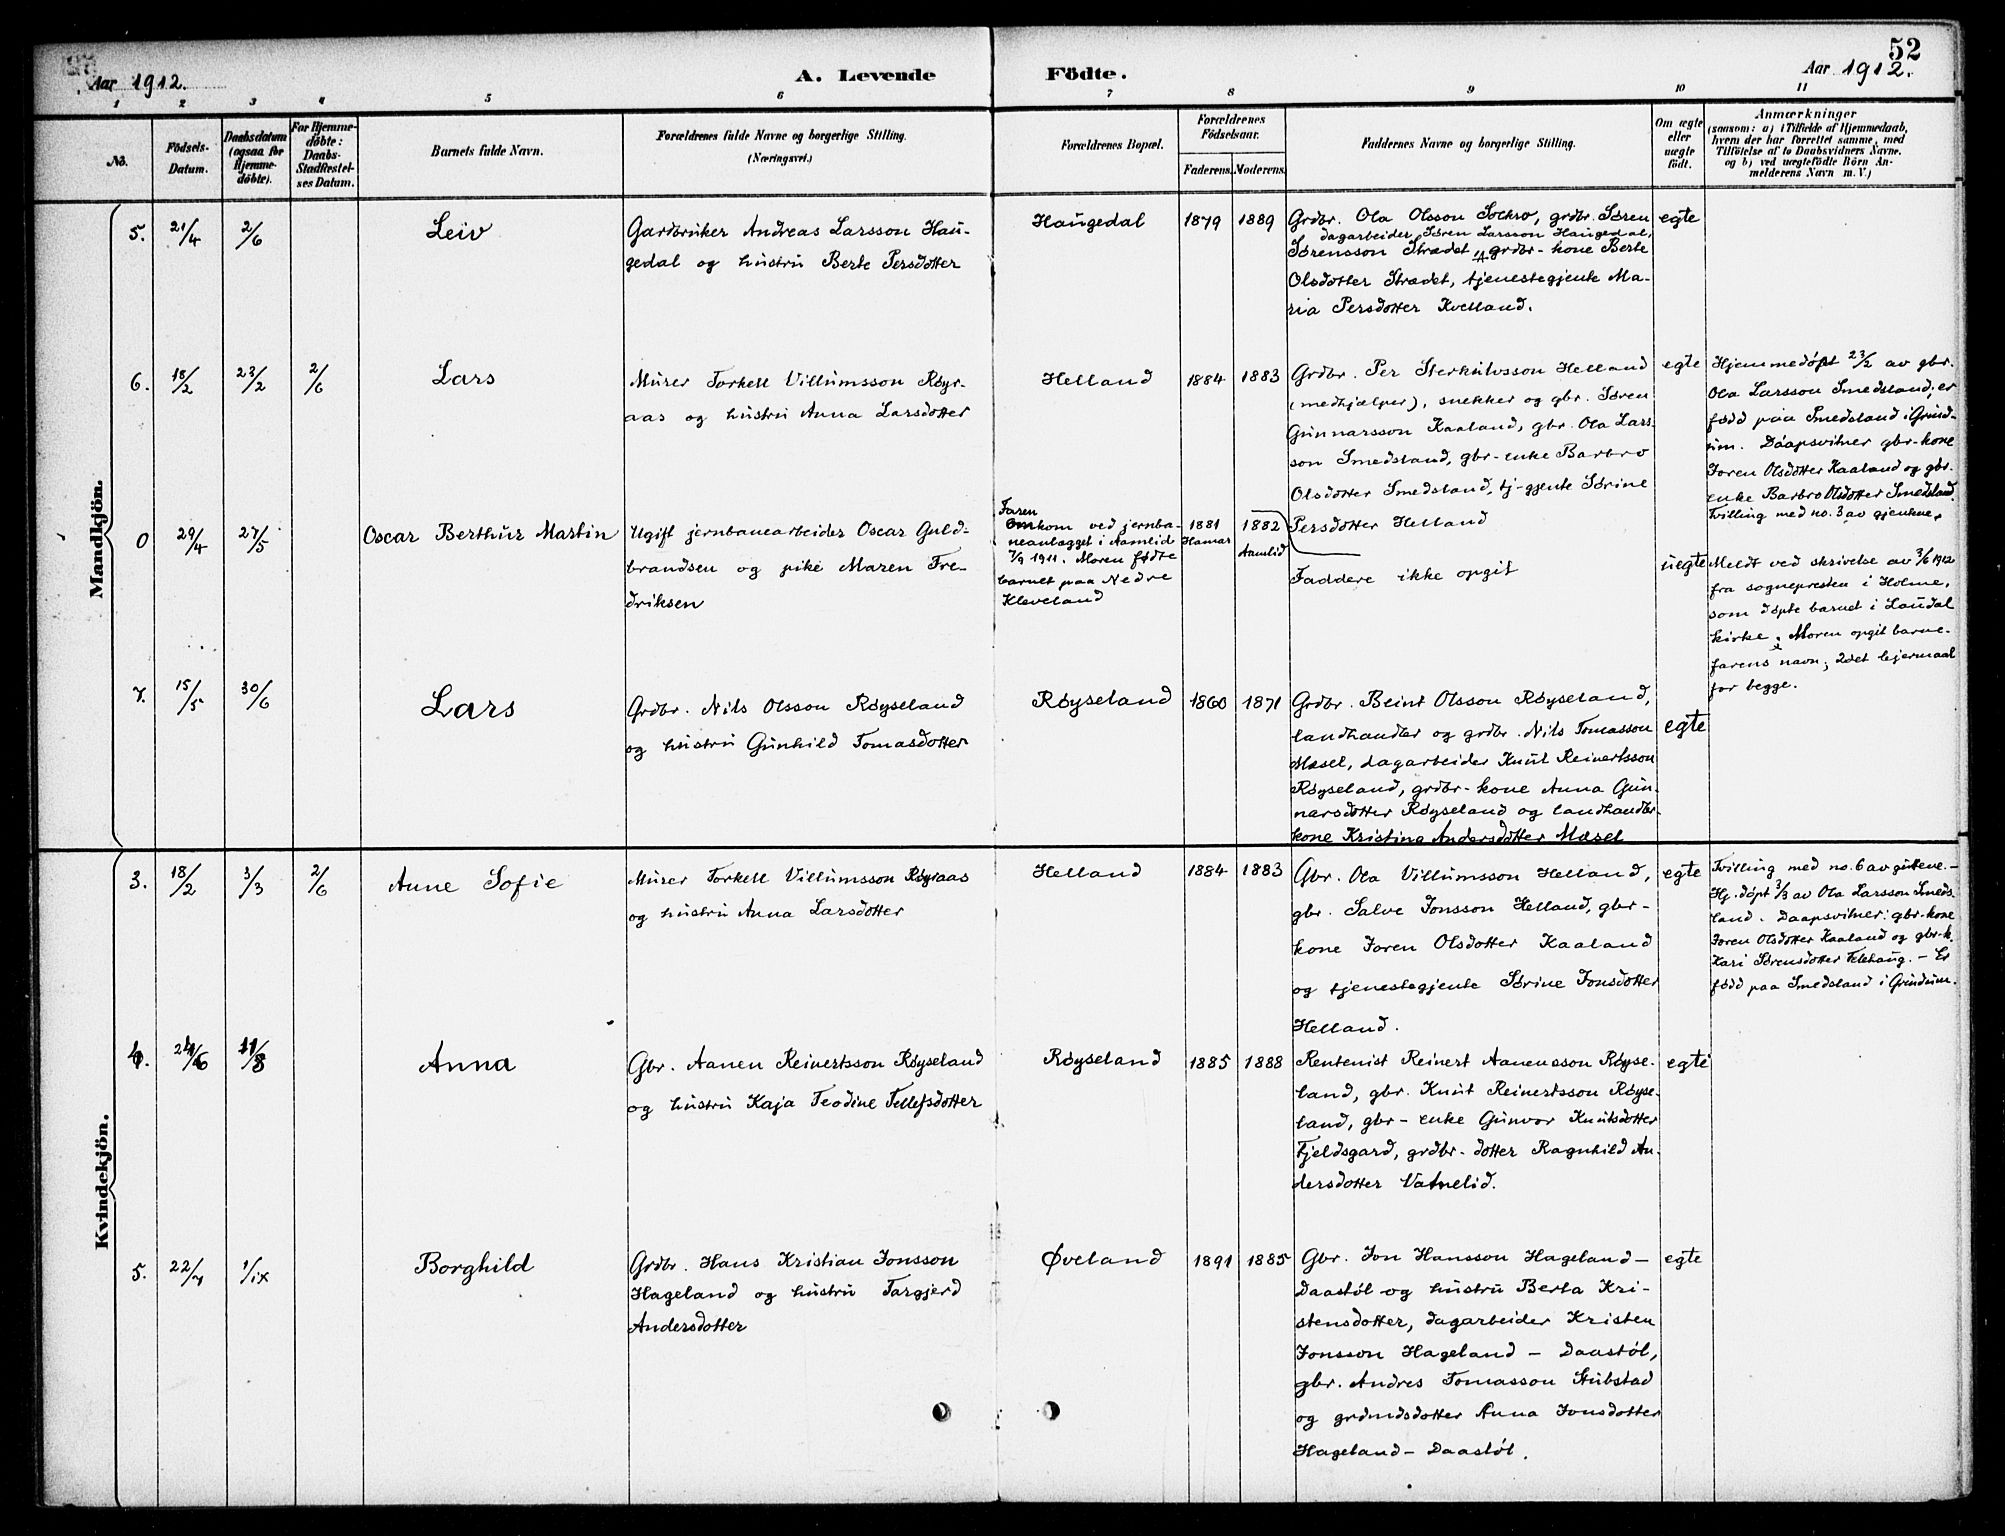 52
Aar 1912.
A. Levende Födte.
Aar 1912.
1 2 3 4 5 6 7 8 9 10 11
No.
Fødsels-Datum.
Daabsdatum (ogsaa for Hjemme-døbte).
For Hjemme-døbte: Daabs-Stadfæstel-ses Datum.
Barnets fulde Navn.
Forældrenes fulde Navne og borgerlige Stilling. (Næringsvei.)
Forældrenes Bopæl.
Forældrenes Fødselsaar.
Faderens. Moderens.
Faddernes Navne og borgerlige Stilling.
Om ægte eller uægte født.
Anmærkninger
(saasom: a) i Tilfælde af Hjemmedaab,
hvem der har forrettet samme, med
Tilføielse af to Daabsvidners Navne.
og b) ved uægtefødte Børn An-
melderens Navn m. V.)
Mandkjön.
5. 21/4 2/6 Leiv
Gardbruker Andreas Larsson Hau-
gedal og hustru Berte Persdotter
Haugedal 1879 1889
Grdbr. Ola Olsson Sockro, grdbr. Søren
dagarbeider Søren Larsson Haugedal,
Sørensson Strædet, grdbr-kone Berte
Olsdotter Strædet, tjenestegjente Ma-
ria Persdotter Kvelland.
egte
6. 18/2 23/2 2/6 Lars
Murer Torkell Villumsson Røyr-
aas og hustru Anna Larsdotter
Helland 1884 1883
Grdbr. Per Sterkulvsson Helland
(medhjælper), snekker og gbr. Søren
Gunnarsson Kaaland, gbr. Ola Lars-
son Smedsland, gbr-enke Barbro
Olsdotter Smedsland, tj-gjente Sørine
Persdotter Helland
egte
Hjemmedøpt 23/2 av gbr.
Ola Larsson Smedsland; er
fødd paa Smedsland i Grind-
um. Daapsvitner gbr-kone
Joren Olsdotter Kaaland og gbr.
enke Barbro Olsdotter Smedsland.
Tvilling med no. 3 av gjentene.
0 29/4 27/5 Oscar Berthur Martin
Ugift jernbanearbeider Oscar Guld-
brandsen og pike Maren Fre-
driksen
Faren
omkom ved jernba-
neanlægget i Aamlid
7/9 1911. Moren fødte
barnet paa Nedre
Kleveland
1881 Hamar 1882 Aamlid
Faddere ikke opgit
uegte
Meldt ved skrivelse av 3/6 1912
fra sognepresten i Holme,
som døpte barnet i Laudal
kirke. Moren opgit barne-
farens navn; 2det lejermaal
for begge.
7. 15/5 30/6 Lars
Grdbr. Nils Olsson Røyseland
og hustru Gunhild Tomasdotter
Røyseland 1860 1871
Grdbr. Beint Olsson Røyseland,
landhandler og grdbr. Nils Tomasson
Mæsel, dagarbeider Knut Reinertsson
Røyseland, grdbr-kone Anna Gun-
narsdotter Røyseland og landhandler-
kone Kristine Andersdotter Mæsel
egte
Kvindekjön.
3. 18/2 3/3 2/6 Anne Sofie
Murer Torkell Villumsson Røyraas
og hustru Anna Larsdotter
Helland 1884 1883
Gbr. Ola Villumsson Helland,
gbr. Salve Jonsson Helland, gbr-
kone Joren Olsdotter Kaaland
og tjenestegjente Sørine Jonsdotter
Helland.
egte
Tvilling med no. 6 av guttene.-
Hj.døpt 3/3 av Ola Larsson Smeds-
land. Daapsvitner: gbr-kone
Joren Olsdotter Kaaland og gbr-k.
Kari Sørensdotter Telehaug. - Er
fødd paa Smedsland i Grindum.
4. Anna
Gbr. Aanen Reinertsson Røyseland
og hustru Kaja Teodine Tellefsdotter
Røyseland 1885 1888
Rentenist Reinert Aanensson Røyse-
land, gbr. Knut Reinertsson Røyse-
land, gbr-enke Gunvor Knutsdotter
Fjeldsgard, grdbr-dotter Ragnhild An-
dersdotter Vatnelid.
egte
5. 22/7 1/IX Borghild
Grdbr. Hans Kristian Jonsson
Hageland og hustru Targjerd
Andersdotter
Øveland 1891 1885
Gbr. Jon Hansson Hageland-
Daastøl og hustru Berta Kri-
stensdotter, dagarbeider Kristen
Jonsson Hageland - Daastøl,
gbr. Andres Tomasson Stubstad
og grdmdsdotter Anna Jonsdotter
Hageland - Daastøl.
egte